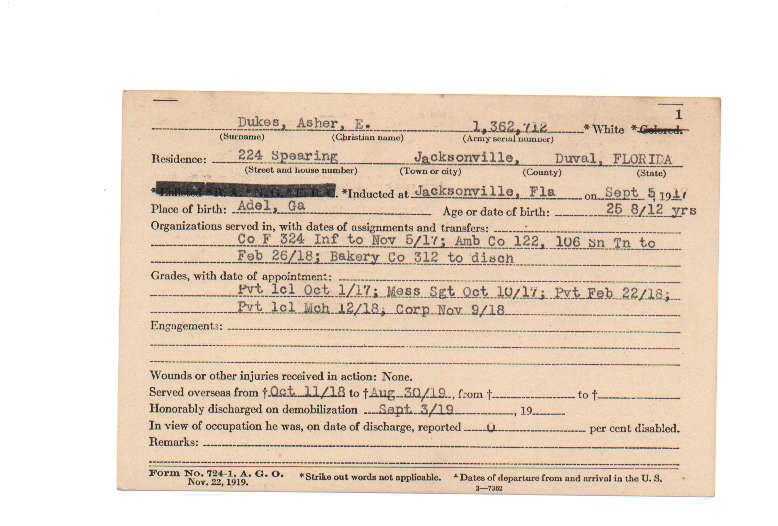 1
Dukes, Asher, E. 1,362,712 *White *Colored.
(Surname) (Christian name) (Army serial number)
Residence: 224 Spearing Jacksonville, Duval, FLORIDA
(Street and house number) (Town or city) (County) (State)
*Inducted at Jacksonville, Fla on Sept 5, 1917
Place of birth: Adel, Ga Age or date of birth: 25 8/12 yrs
Organizations served in, with dates of assignments and transfers:
Co F 324 Inf to Nov 5/17; Amb Co 122, 106 Sn Tn to
Feb 26/18; Bakery Co 312 to disch
Grades, with date of appointment:
Pvt 1cl Oct 1/17; Mess Sgt Oct 10/17; Pvt Feb 22/18;
Pvt 1cl Mch 12/18, Corp Nov 9/18
Engagements:
Wounds or other injuries received in action: None.
Served overseas from †Oct 11/18 to †Aug 30/19, from † to †
Honorably discharged on demobilization Sept 3/19, 19
In view of occupation he was, on date of discharge, reported 0 per cent disabled.
Remarks:
Form No. 724-1, A. G. O. *Strike out words not applicable. †Dates of departure from and arrival in the U. S.
Nov. 22, 1919. 3—7362